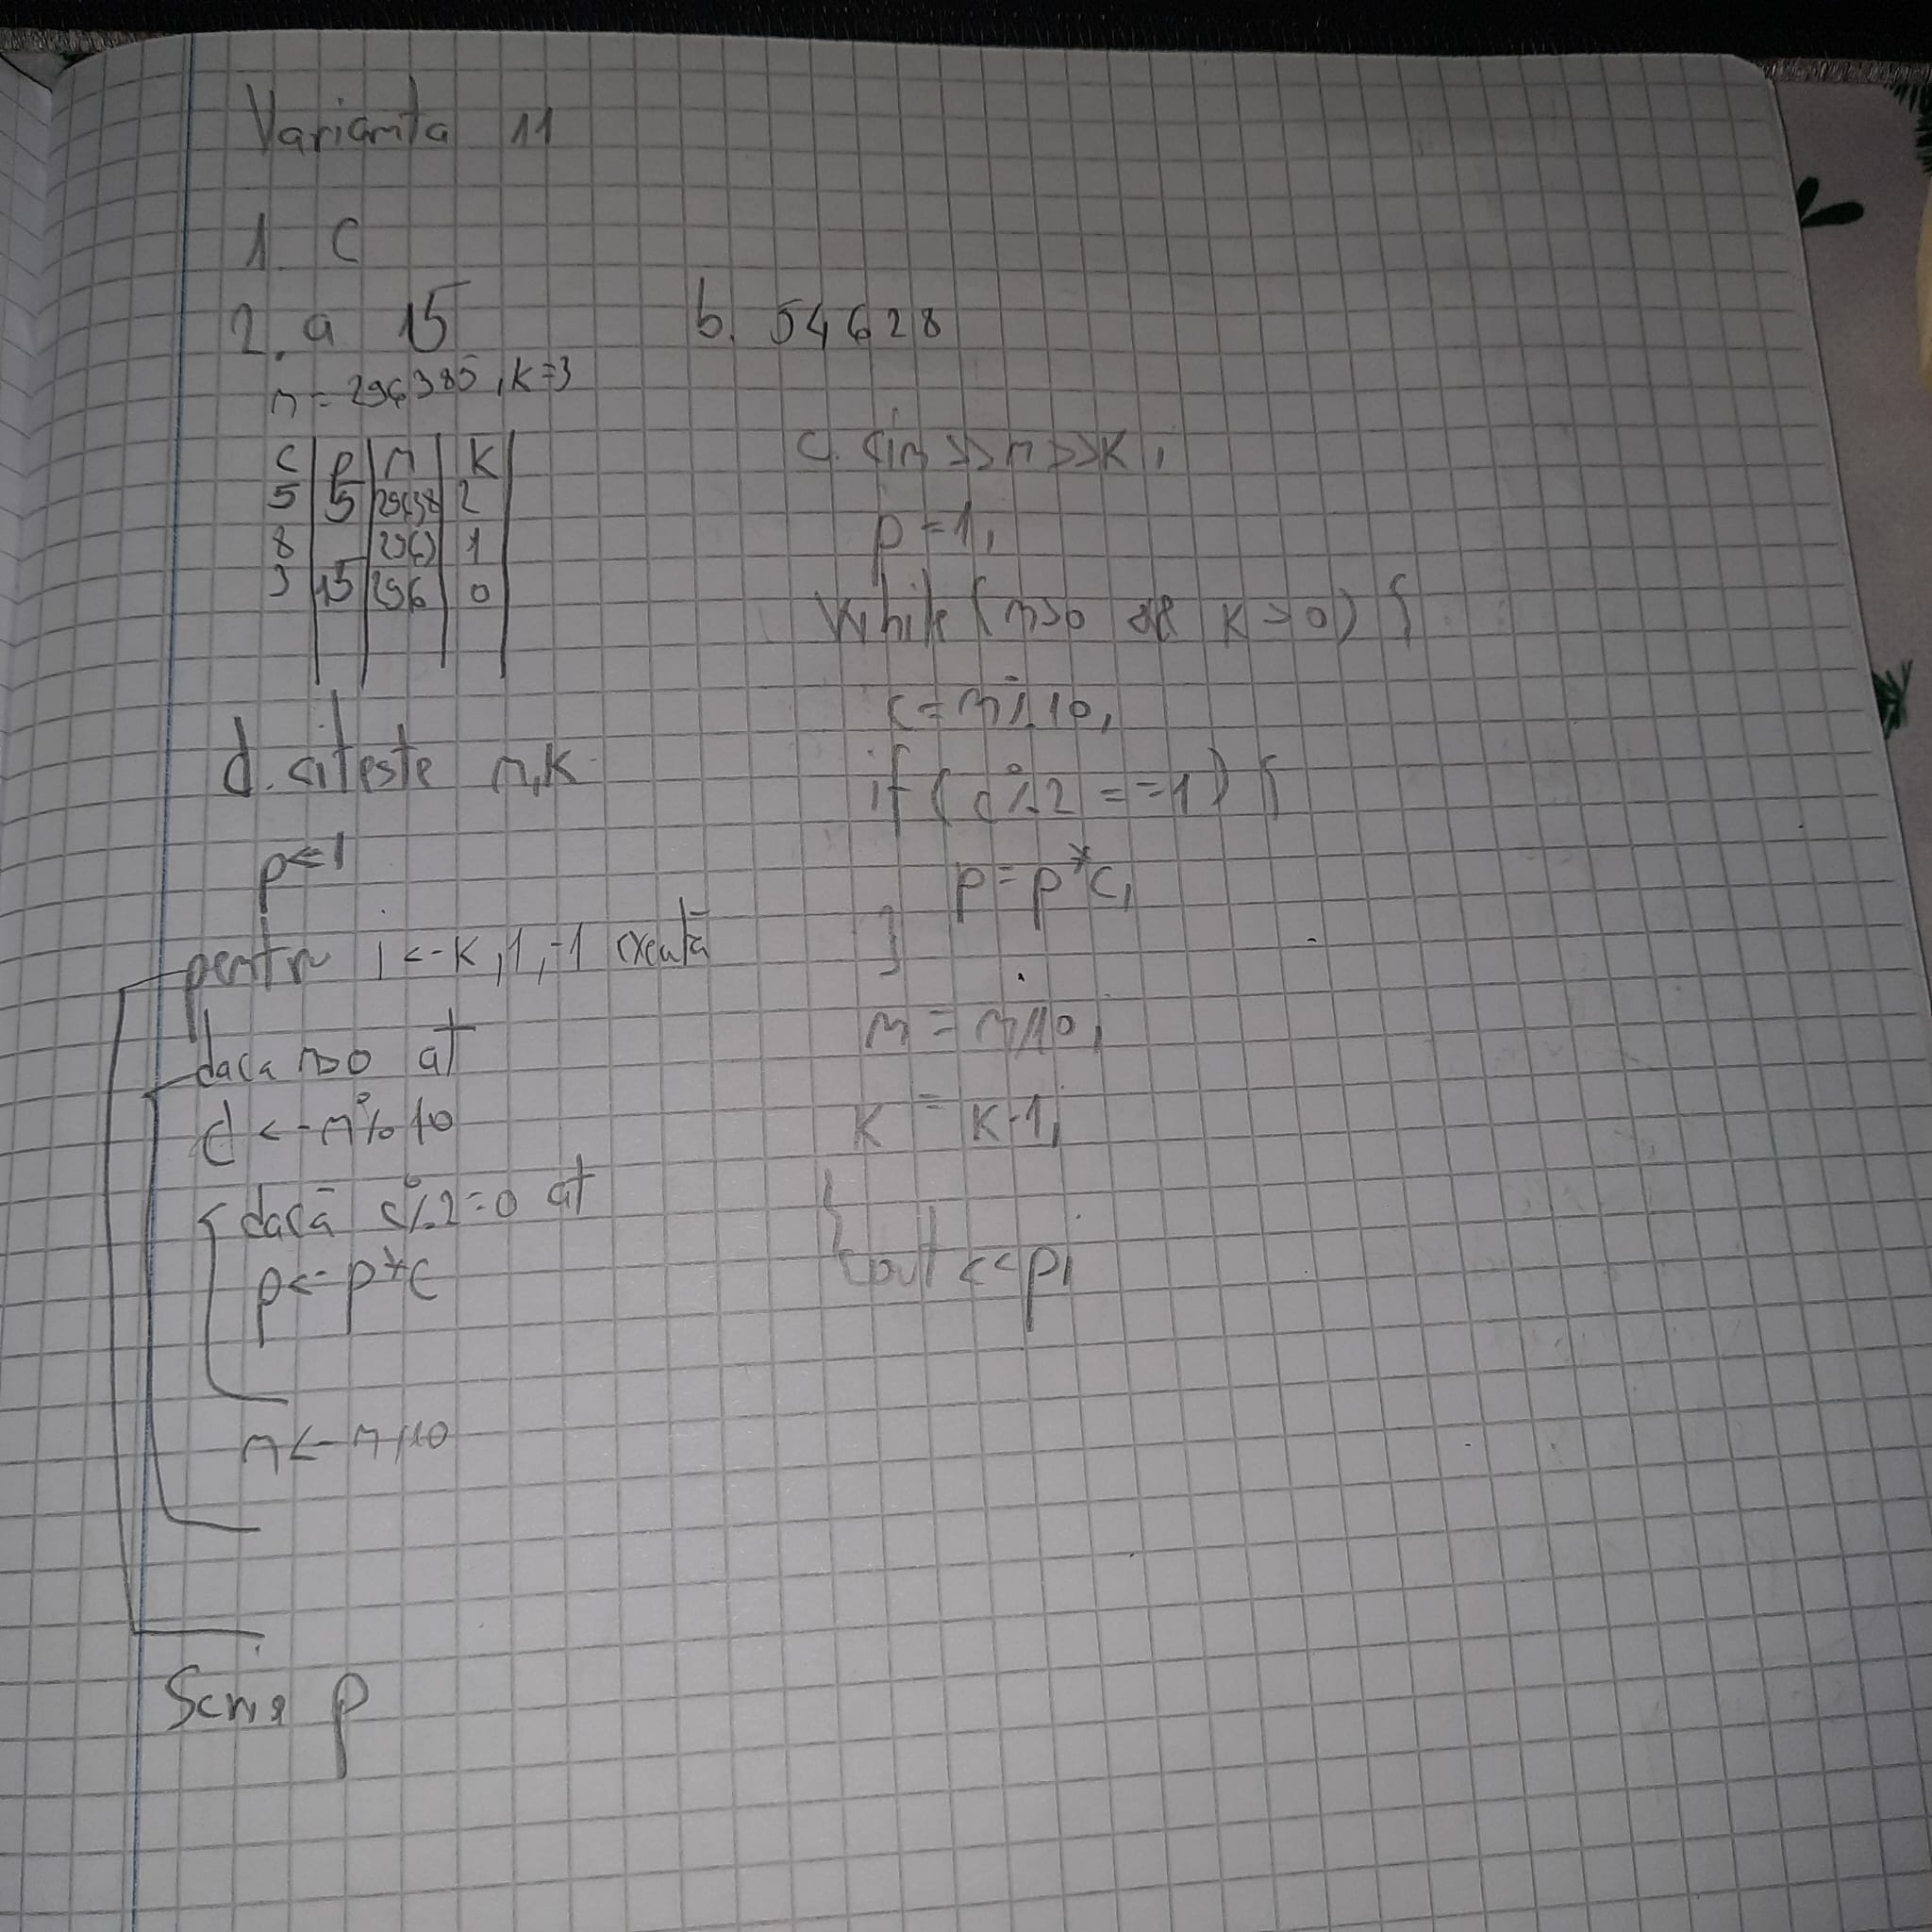 Varianta 11
1. C
2. a 15
n = 296385, k=3
c | p | n | k
5 | 5 | 29638 | 2
8 | | 2963 | 1
3 | 15 | 296 | 0
b. 54628
c. cin >> n >> k;
p = 1;
while (n>0 && k>0) {
c = n%10;
if (c%2 == 1) {
p = p*c;
}
n = n/10;
k = k-1;
}
cout << p;
d. citeste n,k
p <- 1
pentru i <- k, 1, -1 execută
daca n>0 at
c <- n%10
dacă c%2=0 at
p <- p*c
n <- n/10
Scrie p